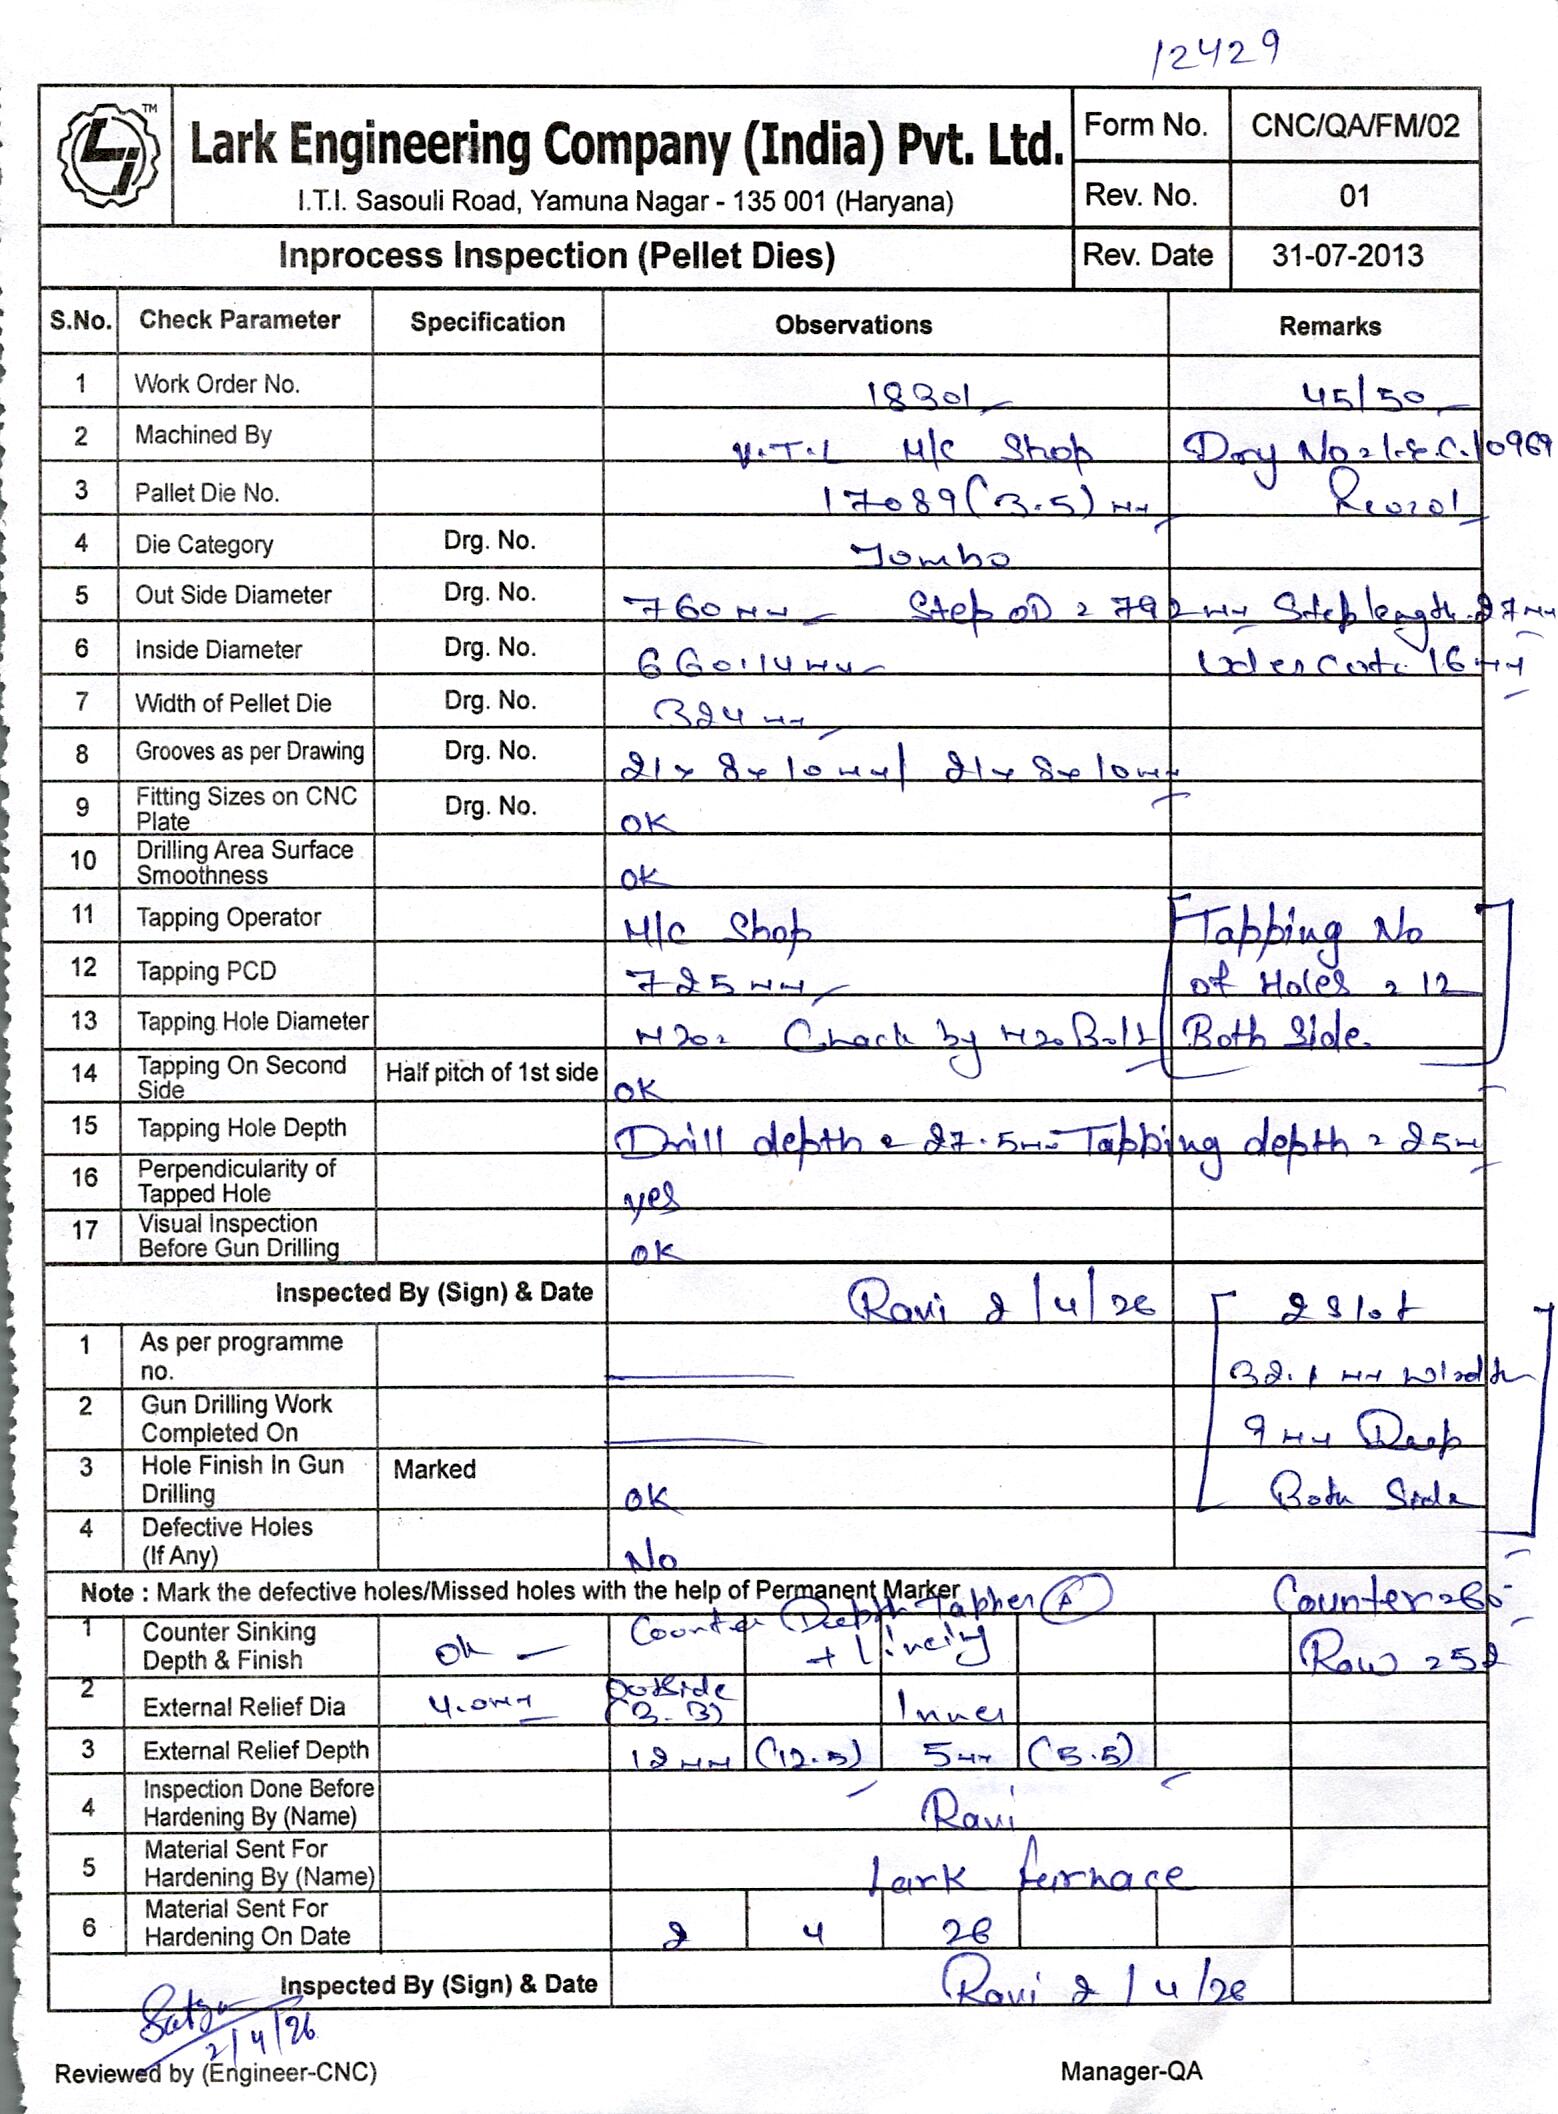 12429
Lark Engineering Company (India) Pvt. Ltd.
I.T.I. Sasouli Road, Yamuna Nagar - 135 001 (Haryana)
Form No. CNC/QA/FM/02
Rev. No. 01
Inprocess Inspection (Pellet Dies)
Rev. Date 31-07-2013
S.No. Check Parameter Specification Observations Remarks
1 Work Order No. 18301 45/50
2 Machined By V.T.L M/C Shop Drg No = L.E.C. 10969
3 Pallet Die No. 17089 (3.5) mm Rev.o20!
4 Die Category Drg. No. Jombo
5 Out Side Diameter Drg. No. 760 mm Step OD = 792 mm Step length = 27 mm
6 Inside Diameter Drg. No. 660.14 mm Under Cut = 16 mm
7 Width of Pellet Die Drg. No. 324 mm
8 Grooves as per Drawing Drg. No. 21 x 8 x 10 mm / 21 x 8 x 10 mm
9 Fitting Sizes on CNC Plate Drg. No. OK
10 Drilling Area Surface Smoothness OK
11 Tapping Operator M/C Shop Tapping No
12 Tapping PCD 725 mm of Holes = 12
13 Tapping Hole Diameter M20 = Chack by M20 Bolt Both Side.
14 Tapping On Second Side Half pitch of 1st side OK
15 Tapping Hole Depth Drill depth = 27.5 mm Tapping depth = 25 mm
16 Perpendicularity of Tapped Hole yes
17 Visual Inspection Before Gun Drilling OK
Inspected By (Sign) & Date Ravi 2/4/26 2 Slot
1 As per programme no. 32.1 mm Width
2 Gun Drilling Work Completed On 9 mm Deep
3 Hole Finish In Gun Drilling Marked OK Both Side
4 Defective Holes (If Any) No
Note : Mark the defective holes/Missed holes with the help of Permanent Marker
Counter Depth Tapher A Counter = 60°
1 Counter Sinking Depth & Finish Ok + lincing Row = 52
2 External Relief Dia 4.0 mm Outside (3.3) Inner
3 External Relief Depth 12 mm (12.5) 5 mm (5.5)
4 Inspection Done Before Hardening By (Name) Ravi
5 Material Sent For Hardening By (Name) Lark fernace
6 Material Sent For Hardening On Date 2 4 26
Inspected By (Sign) & Date Ravi 2/4/26
Satya 2/4/26
Reviewed by (Engineer-CNC) Manager-QA